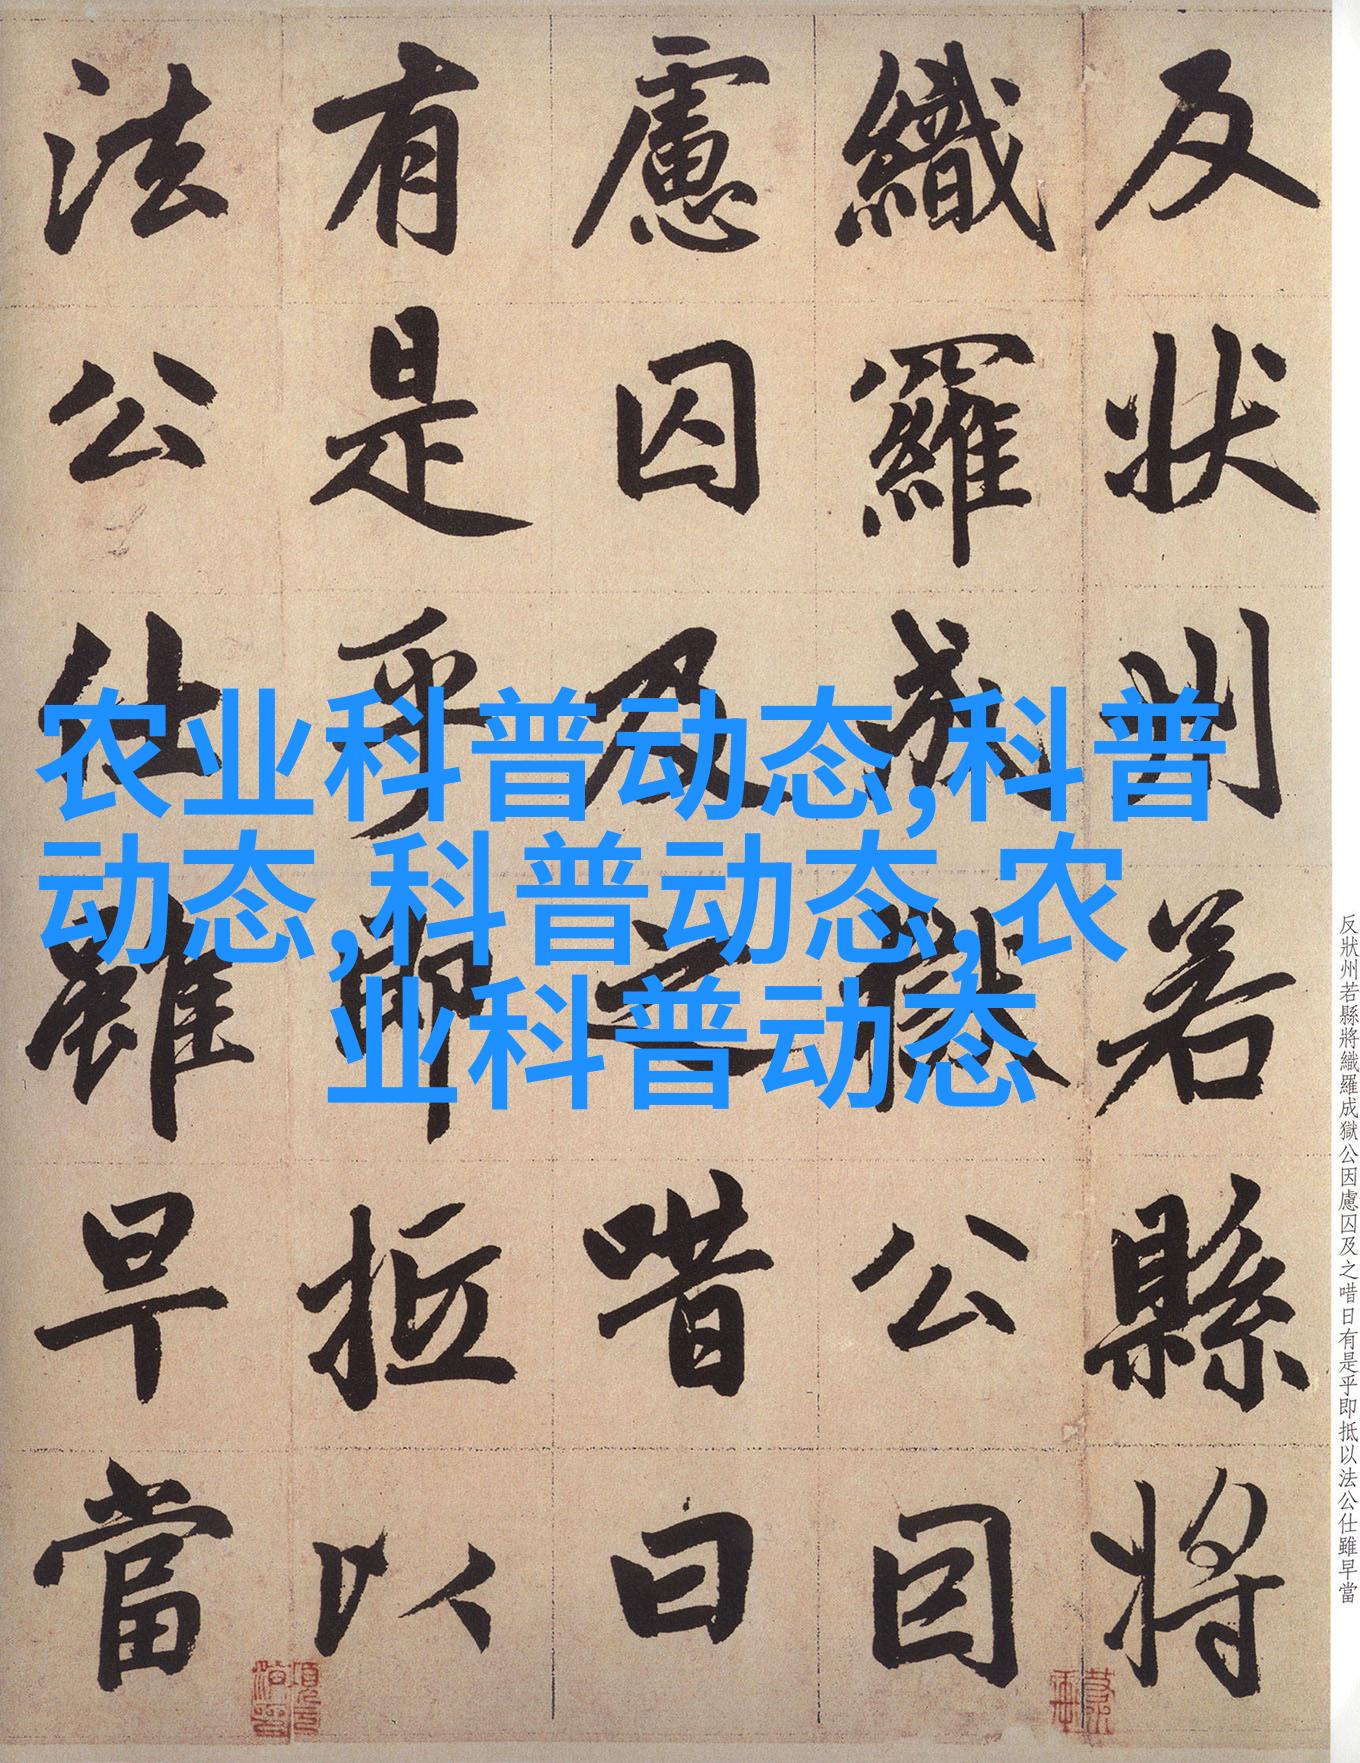 反状州若縣將
織羅成獄公因
慮囚及之唶曰
有是乎即抵以
法公仕雖早當
农业科普动态,科普
动态,科普动态,农
业科普动态
反狀州若縣將織羅成獄公因慮囚及之唶日有是乎即抵以法公仕雖早當